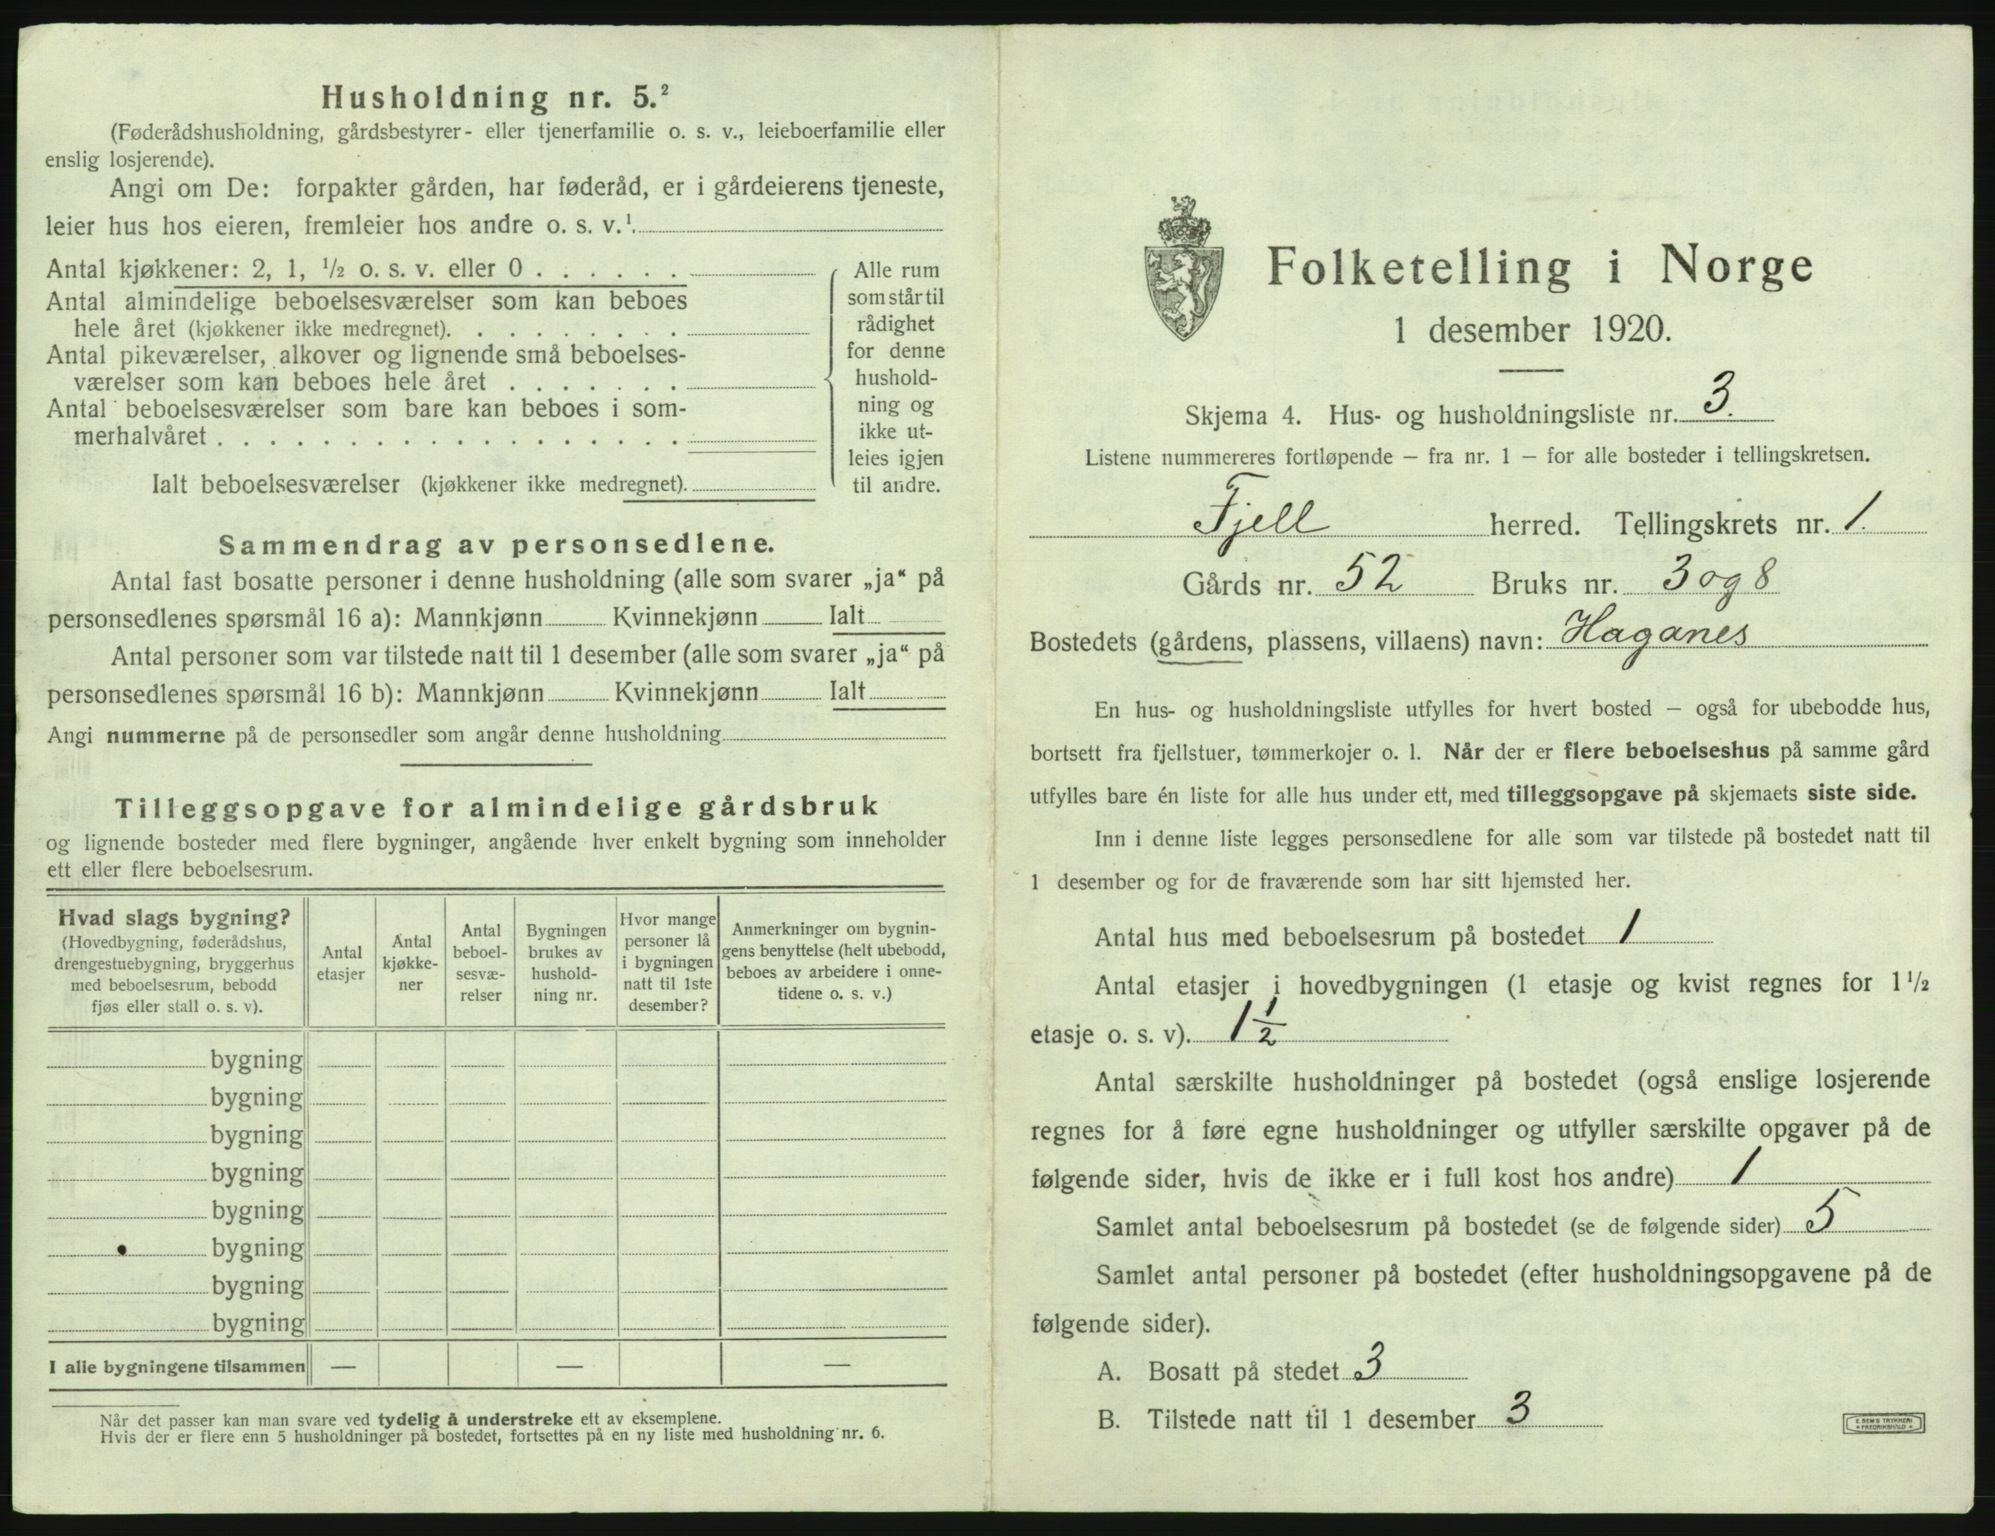 Husholdning nr. 5.²
(Føderådshusholdning, gårdsbestyrer- eller tjenerfamilie o. s. v., leieboerfamilie eller
enslig losjerende).
Angi om De: forpakter gården, har føderåd, er i gårdeierens tjeneste,
leier hus hos eieren, fremleier hos andre o. s. v.¹.
Antal kjøkkener: 2, 1, ½ o. s. v. eller 0 . . . . . .
Antal almindelige beboelsesværelser som kan beboes
hele året (kjøkkener ikke medregnet). . . . . . . . .
Antal pikeværelser, alkover og lignende små beboelses-
værelser som kan beboes hele året . . . . . . .
Antal beboelsesværelser som bare kan beboes i som-
merhalvåret . . . . . . . . . . . . . . . . . .
Ialt beboelsesværelser (kjøkkener ikke medregnet).
Alle rum
som står til
rådighet
for denne
hushold-
ning og
ikke ut-
leies igjen
til andre.
Sammendrag av personsedlene.
Antal fast bosatte personer i denne husholdning (alle som svarer „ja“ på
personsedlenes spørsmål 16 a): Mannkjønn Kvinnekjønn Ialt
Antal personer som var tilstede natt til 1 desember (alle som svarer „ja“ på
personsedlenes spørsmål 16 b): Mannkjønn Kvinnekjønn Ialt
Angi nummerne på de personsedler som angår denne husholdning
Tilleggsopgave for almindelige gårdsbruk
og lignende bosteder med flere bygninger, angående hver enkelt bygning som inneholder
ett eller flere beboelsesrum.
Hvad slags bygning?
(Hovedbygning, føderådshus,
drengestuebygning, bryggerhus
med beboelsesrum, bebodd
fjøs eller stall o. s. v).
Antal
etasjer
Antal
kjøkke-
ner
Antal
beboel-
sesvæ-
relser
Bygningen
brukes av
hushold-
ning nr.
Hvor mange
personer lå
i bygningen
natt til 1ste
desember?
Anmerkninger om bygnin-
gens benyttelse (helt ubebodd,
beboes av arbeidere i onne-
tidene o. s. v.)
bygning
bygning
bygning
bygning
bygning
bygning
bygning
bygning
I alle bygningene tilsammen — — —
Når det passer kan man svare ved tydelig å understreke ett av eksemplene.
Hvis der er flere enn 5 husholdninger på bostedet, fortsettes på en ny liste med husholdning nr. 6.
Folketelling i Norge
1 desember 1920.
Skjema 4. Hus- og husholdningsliste nr. 3.
Listene nummereres fortløpende – fra nr. 1 – for alle bosteder i tellingskretsen.
Fjell herred. Tellingskrets nr. 1.
Gårds nr. 52 Bruks nr. 3 og 8
Bostedets (gårdens, plassens, villaens) navn: Haganes
En hus- og husholdningsliste utfylles for hvert bosted – også for ubebodde hus,
bortsett fra fjellstuer, tømmerkojer o. l. Når der er flere beboelseshus på samme gård
utfylles bare én liste for alle hus under ett, med tilleggsopgave på skjemaets siste side.
Inn i denne liste legges personsedlene for alle som var tilstede på bostedet natt til
1 desember og for de fraværende som har sitt hjemsted her.
Antal hus med beboelsesrum på bostedet 1
Antal etasjer i hovedbygningen (1 etasje og kvist regnes for 1½
etasje o. s. v). 1½
Antal særskilte husholdninger på bostedet (også enslige losjerende
regnes for å føre egne husholdninger og utfyller særskilte opgaver på de
følgende sider, hvis de ikke er i full kost hos andre) 1
Samlet antal beboelsesrum på bostedet (se de følgende sider) 5
Samlet antal personer på bostedet (efter husholdningsopgavene på de
følgende sider).
A. Bosatt på stedet 3
B. Tilstede natt til 1 desember 3
E. SEM'S TRYKKERI
FREDRIKSHALD